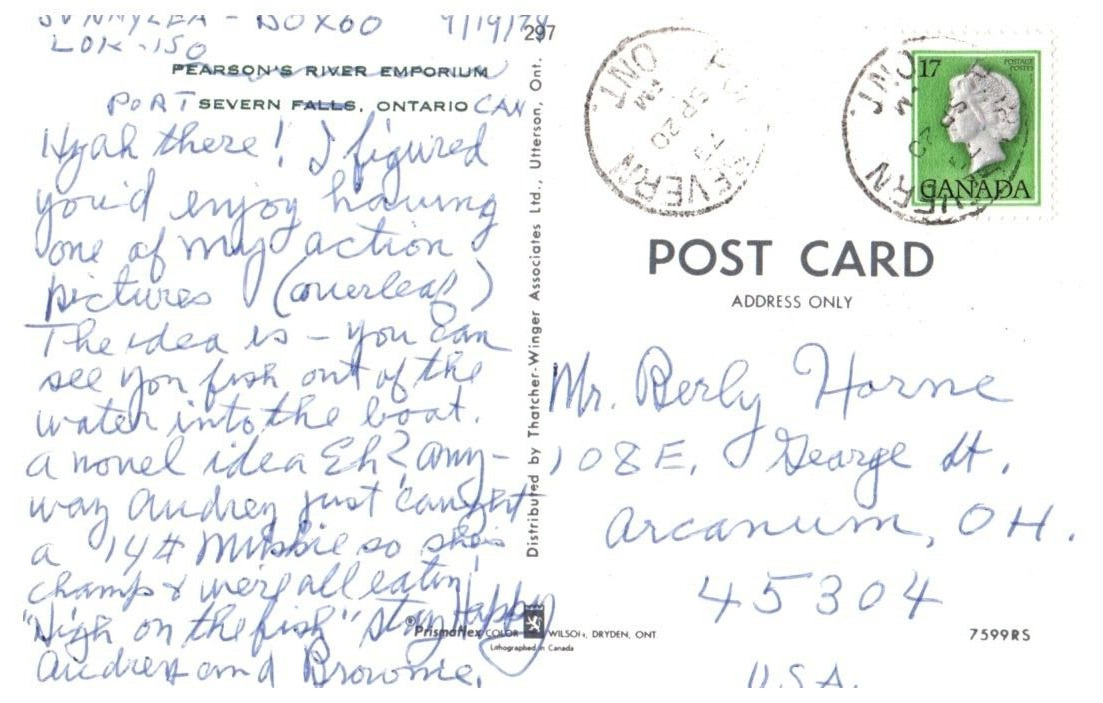 SUNNYLEA - BOX 60 9/19/79
LOK-1S0
297
PEARSON'S RIVER EMPORIUM
PORT SEVERN FALLS, ONTARIO CAN
Hyah there! I figured
you'd enjoy having
one of my action
pictures (overleaf)
The idea is - you can
see you fish out of the
water into the boat.
a novel idea Eh? any-
way Audrey just caught
a 14# Muskie so she's
champ & we're all eatin'
"High on the fish" Stay Happy
Audrey and Brownie.
Distributed by Thatcher-Winger Associates Ltd., Utterson, Ont.
®Prismaflex COLOR WILSON, DRYDEN, ONT
Lithographed in Canada
SEVERN
ONT.
PM
SP 20
79
17
POSTAGE
POSTES
CANADA
SEVERN
ONT.
POST CARD
ADDRESS ONLY
Mr. Berly Horne
108 E. George St.
Arcanum, OH.
45304
U.S.A.
7599RS